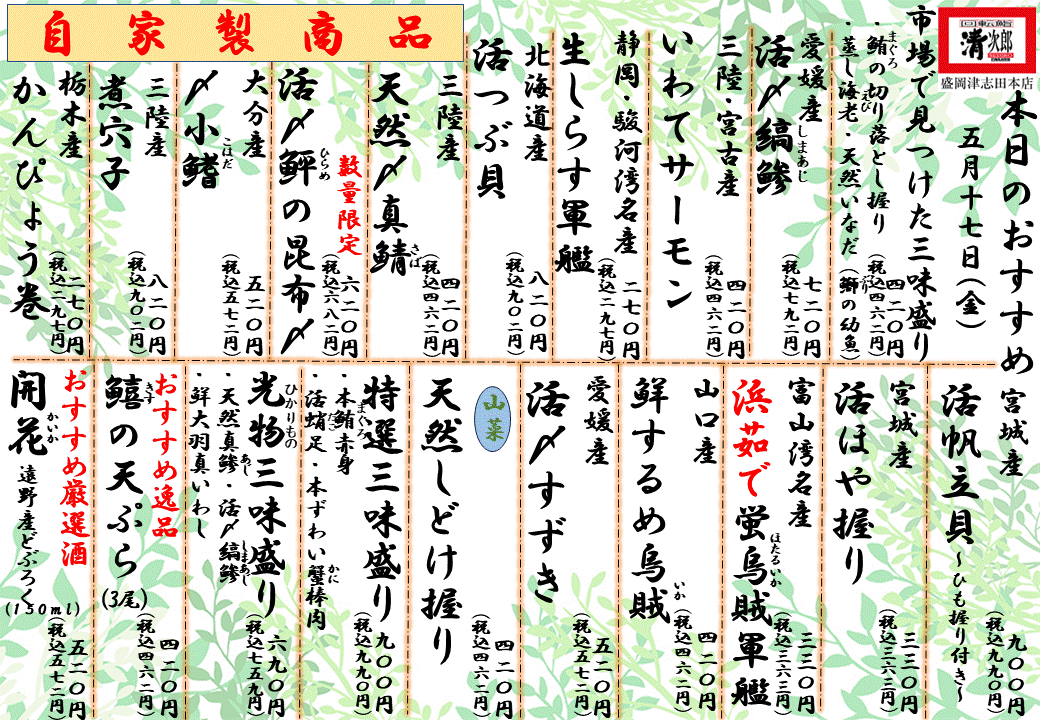 回転鮨
清次郎
盛岡津志田本店
本日のおすすめ
五月十七日(金)
市場で見つけた三味盛り
・鮪の切り落とし握り
まぐろ
・蒸し海老・天然いなだ(鰤の幼魚)
えび
ぶり
四二〇円
(税込四六二円)
愛媛産
活〆縞鯵
しまあじ
七二〇円
(税込七九二円)
三陸・宮古産
いわてサーモン
四二〇円
(税込四六二円)
静岡・駿河湾名産
生しらす軍艦
二七〇円
(税込二九七円)
北海道産
活つぶ貝
八二〇円
(税込九〇二円)
三陸産
天然〆真鯖
さば
四二〇円
(税込四六二円)
数量限定
活〆鮃の昆布〆
ひらめ
六二〇円
(税込六八二円)
大分産
〆小鰭
こはだ
五二〇円
(税込五七二円)
三陸産
煮穴子
八二〇円
(税込九〇二円)
栃木産
かんぴょう巻
二七〇円
(税込二九七円)
自家製商品
宮城産
活帆立貝~ひも握り付き~
九〇〇円
(税込九九〇円)
宮城産
活ほや握り
三三〇円
(税込三六三円)
富山湾名産
浜茹で蛍烏賊軍艦
ほたるいか
三三〇円
(税込三六三円)
山口産
鮮するめ烏賊
いか
四二〇円
(税込四六二円)
愛媛産
活〆すずき
五二〇円
(税込五七二円)
山菜
天然しどけ握り
四二〇円
(税込四六二円)
特選三味盛り
・本鮪赤身
まぐろ
・活蛸足・本ずわい蟹棒肉
たこ
かに
九〇〇円
(税込九九〇円)
光物三味盛り
ひかりもの
・天然真鯵・活〆縞鯵
あじ
しまあじ
・鮮大羽真いわし
六九〇円
(税込七五九円)
おすすめ逸品
鱚の天ぷら(3尾)
きす
四二〇円
(税込四六二円)
おすすめ厳選酒
開花 遠野産どぶろく(150ml)
かいか
五二〇円
(税込五七二円)